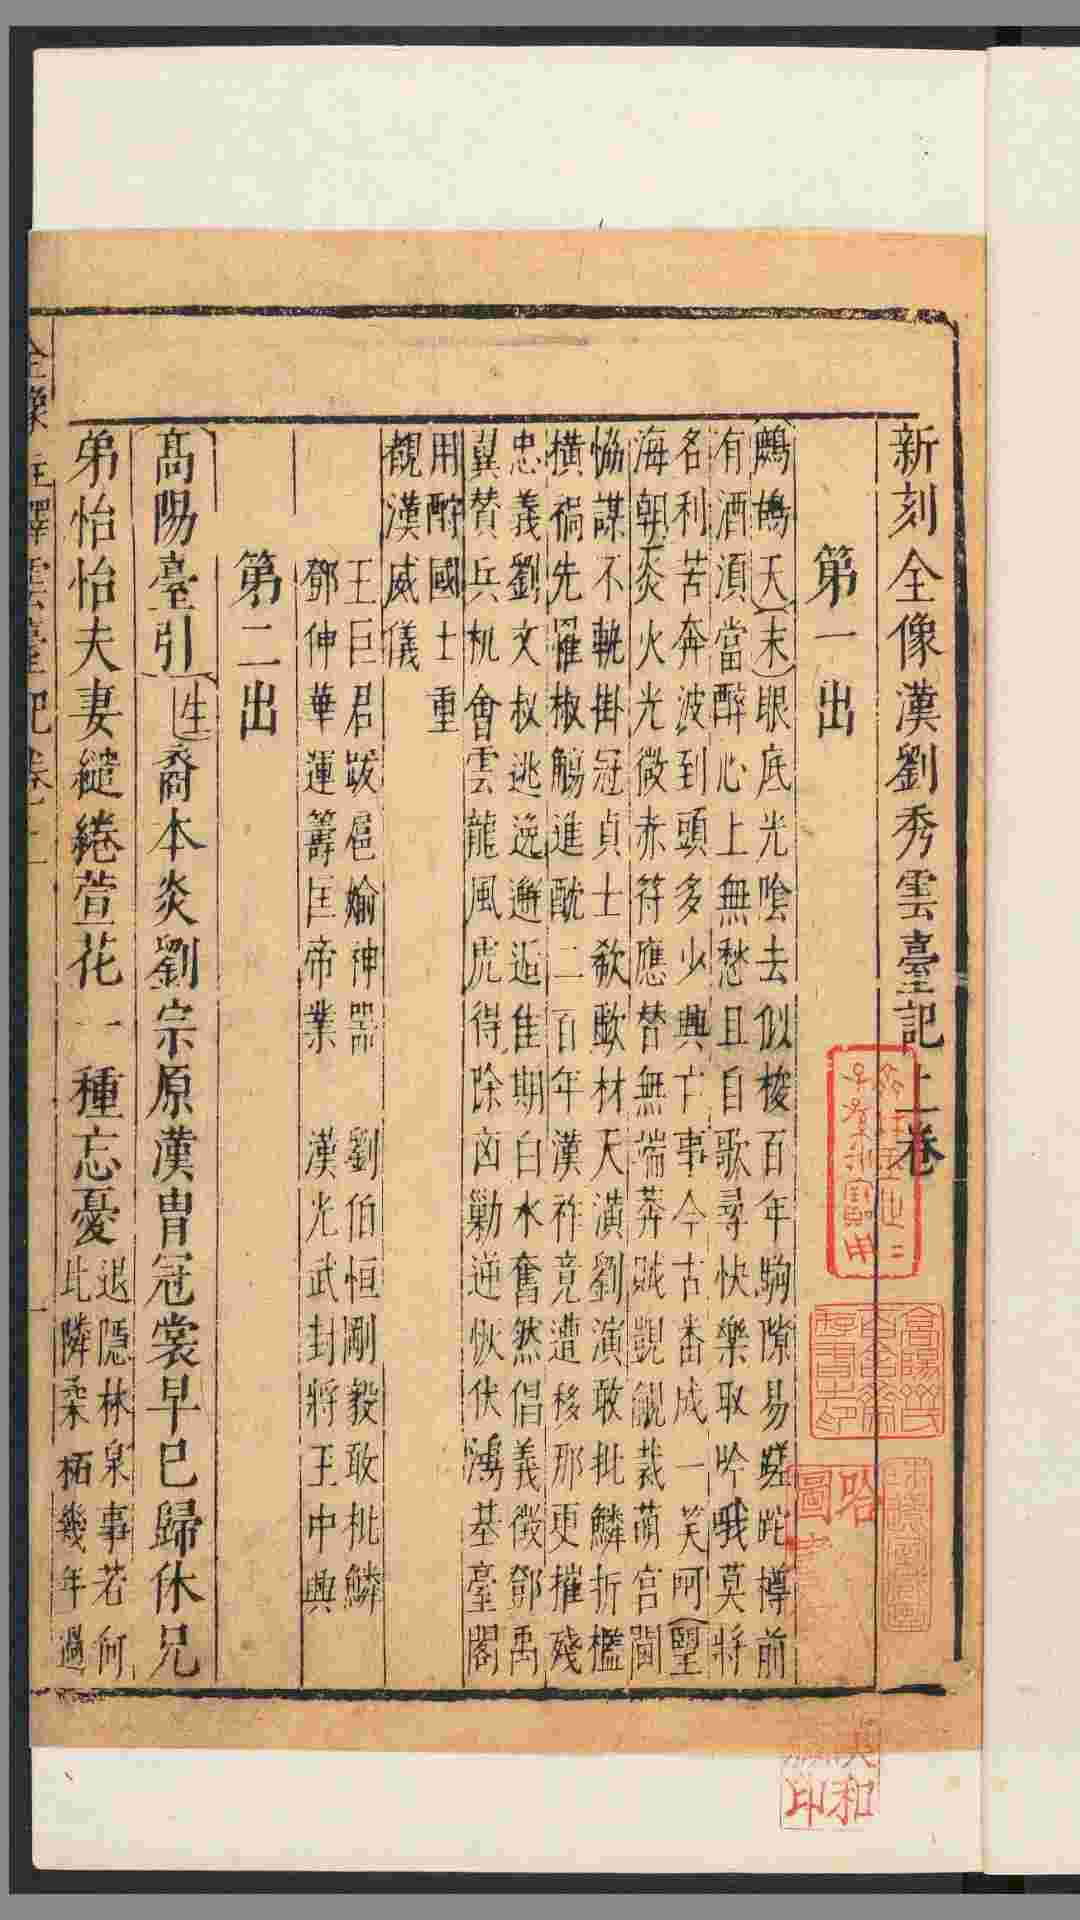 新刻全像漢劉秀雲臺記上卷
第一出
鷓鴣天 末 眼底光陰去似梭百年駒隙易蹉跎樽前
有酒須當醉心上無愁且自歌尋快樂取吟哦莫將
名利苦奔波到頭多少興亡事今古番成一笑呵
海朝炎火光微赤符應替無端莽賊覬覦裁萠宮闈
恊謀不軌掛冠貞士欷歔材天潢劉演敢批鱗折檻
橫禍先罹椒觴進酖二百年漢祚竟遭移那更摧殘
忠義劉文叔逃逸邂逅隹期白水奮然倡義徵鄧禹
冀賛兵机會雲龍風虎得除囟巢逆恢伏鴻基臺閣
用酧國士重
覩漢威儀
王巨君跋扈媮神器 劉伯恒剛毅敢批鱗
鄧仲華運籌匡帝業 漢光武封將王中興
第二出
高陽臺引 生 裔本炎劉宗原漢胄冠裳早已歸休兄
弟怡怡夫妻繾綣萱花一種忘憂
退隱林泉事若何
比隣桑柘幾年過
全像註釋雲臺記卷上
一
和
印